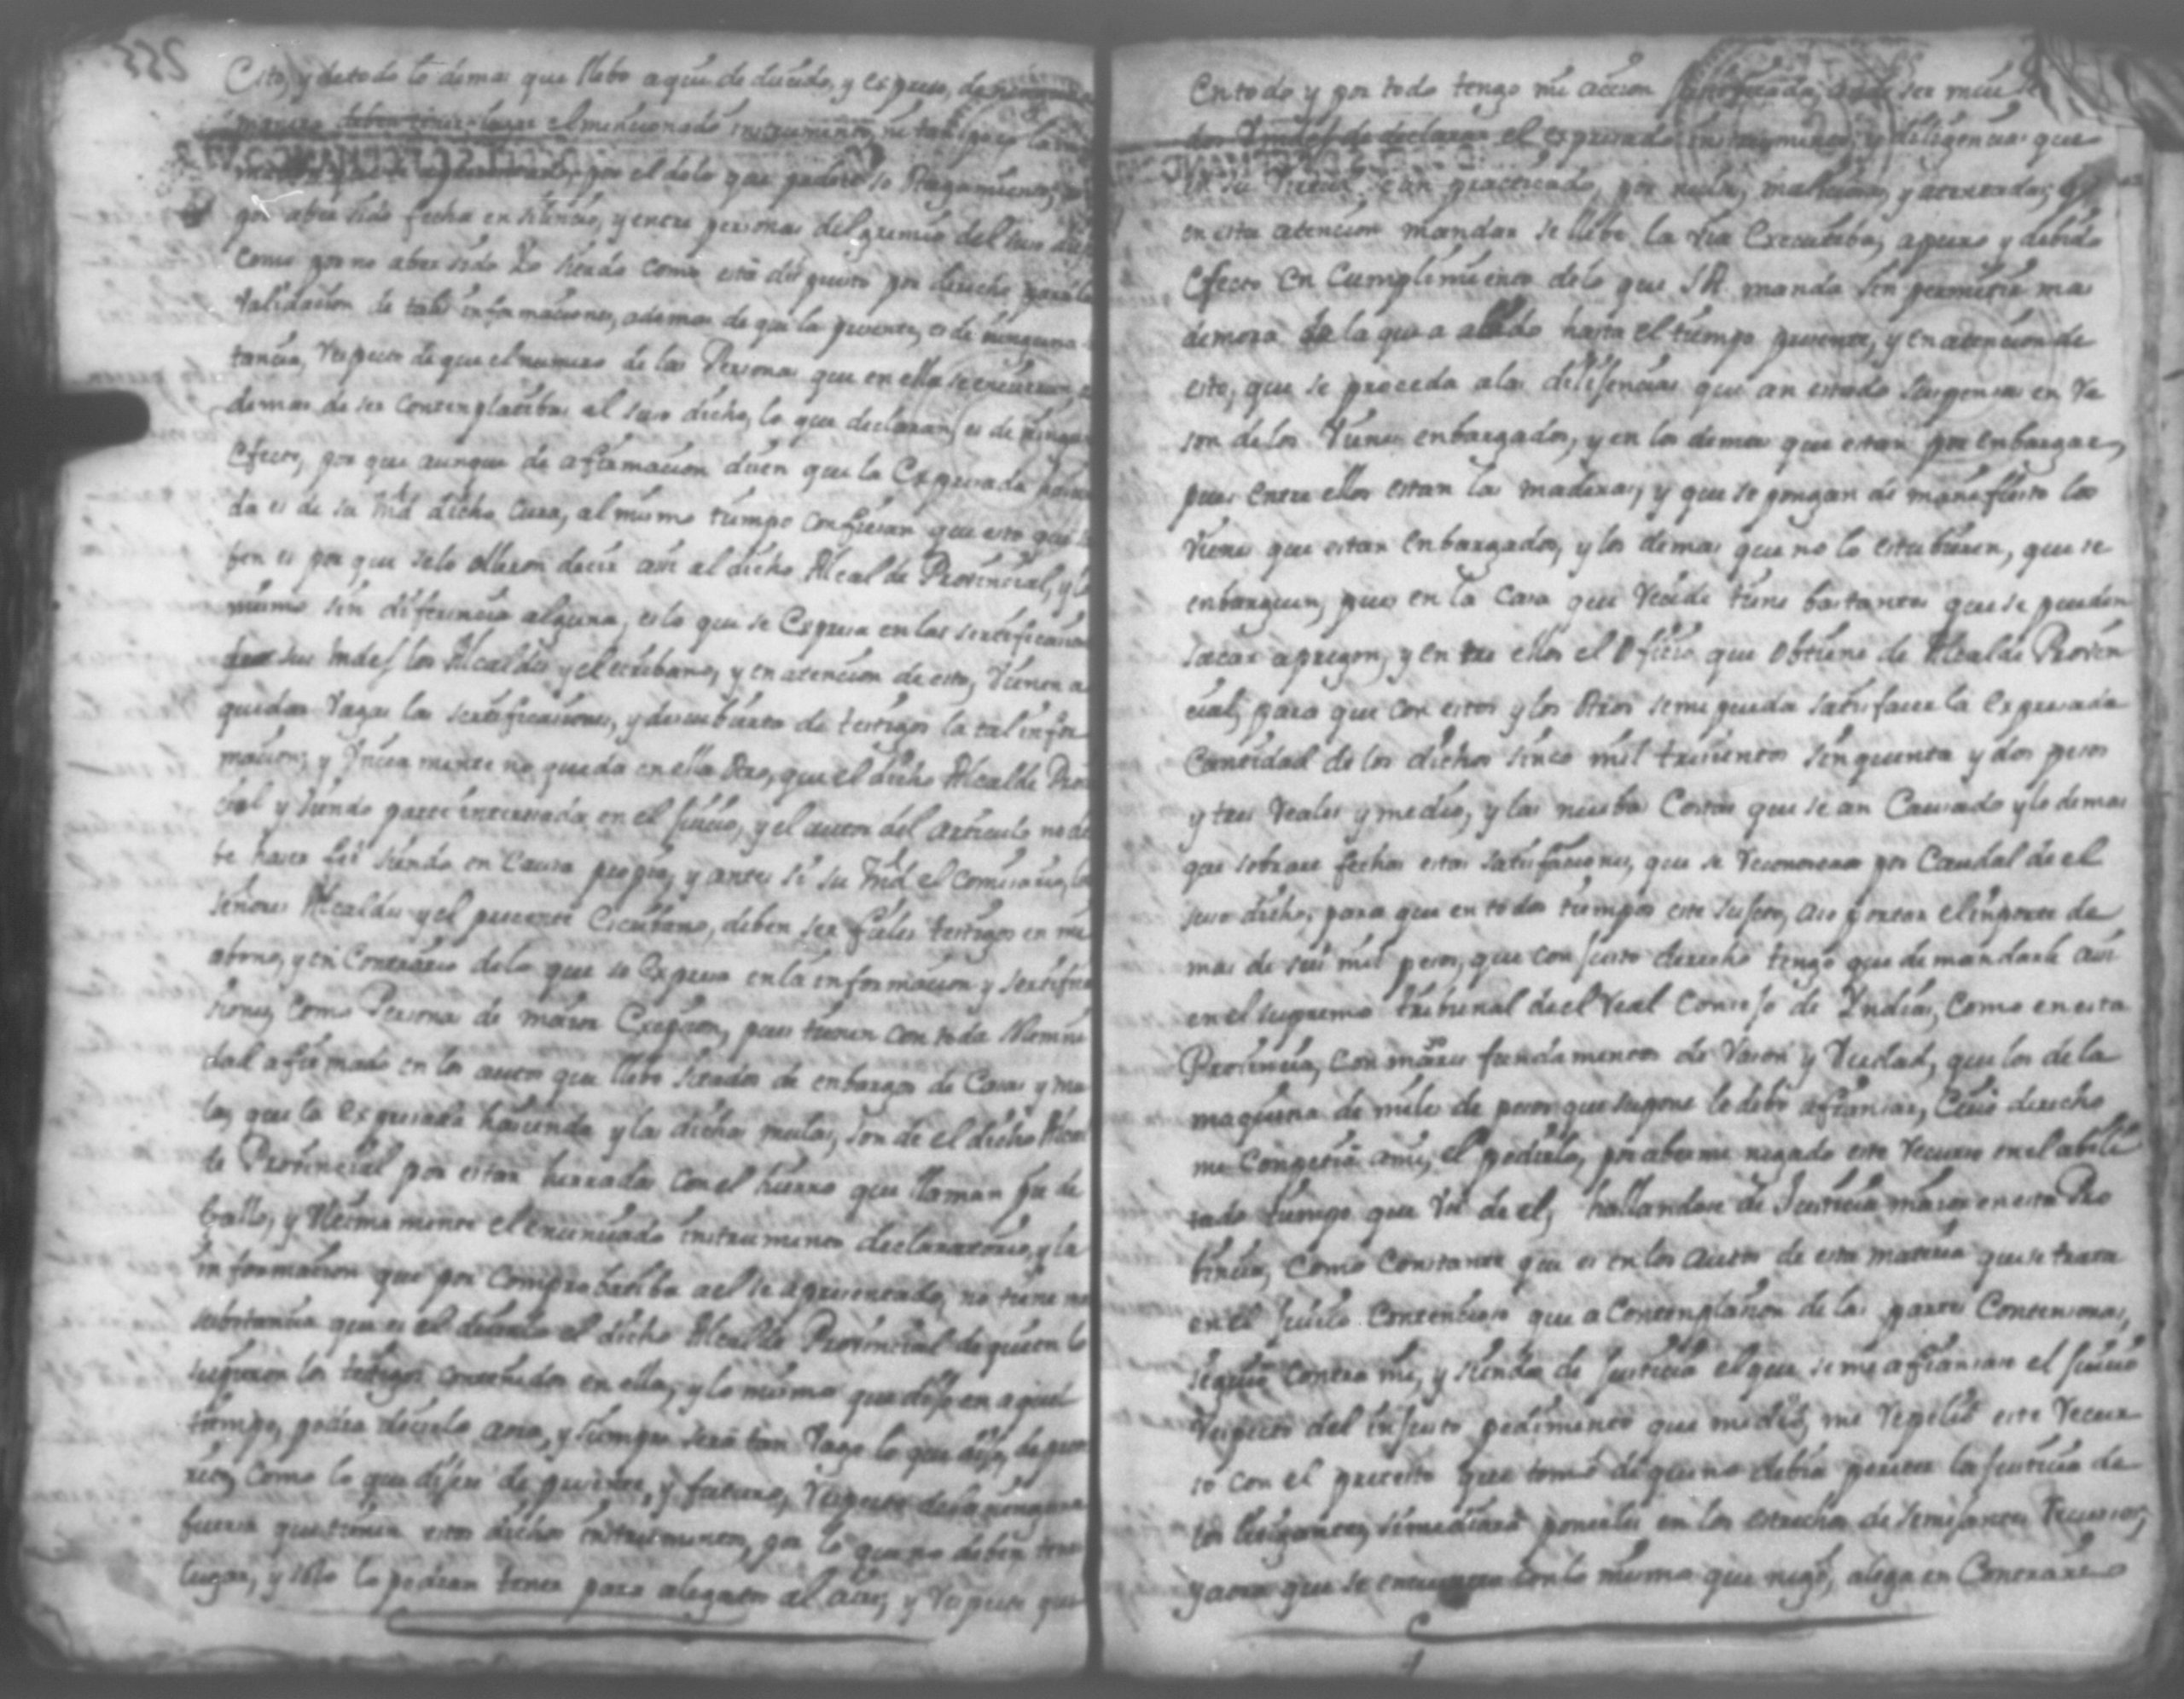 Esto, y de todo lo demas que llebo aqui deducido, y espreso, de
manera el mencionado instrumento, ni tampoco la
por el dolo que padese
por aber sido fecha en silencio, y entre personas del gremio del suso dicho
como por no aber sido Yo sitado como está dispuesto por derecho para la
Validacion de tales informaciones, ademas de que la presente, es de ninguna
tancia, respecto de que el numero de las Personas que en ella se encuentran, a
demas de ser contemplatibas al suso dicho, lo que declaran es de ningun
Efecto, por que aunque de afirmacion dicen que la Expresada hacien
da es de su Md dicho Cura, al mismo tiempo confiesan que esto que sa
ben es por que selo olleron decir asi al dicho Alcalde Provincial, y lo
mismo sin diferencia alguna, es lo que se Expresa en las sertificacio
sus mdes los Alcaldes y el escribano, y en atencion de esto, Vienen a
quedar Vagas las sertificaciones, y descubierta de testigos la tal infor
macion; y Unica mente no queda en ella otro, que el dicho Alcalde Prov
cial y siendo parte interesada en el Juicio, y el autor del articulo no de
be haser fee siendo en Causa propia, y antes si su Md el Comisario, los
señores Alcaldes y el presente Escribano, deben ser fieles testigos en mi
abono, y en Contrario de lo que se Expresa en la informacion y sertifica
siones, como Personas de maior Exepcion, pues tienen con toda
dad afirmado en los autos que llebo sitados de enbargos de Casas y mu
las, que la expresada hacienda y las dichas mulas, son de el dicho Alcal
de Provincial por estar herradas con el hierro que llaman pie de
Gallo, y Ultima mente el enunciado instrumento declaratorio, y la
informacion que por comprobatiba a el se a presentado, no tiene mas
substancia que es el decirlo el dicho Alcalde Provincial de quien lo
supieron los testigos contenidos en ella, y lo mismo que dijo en aquel
tiempo, podra decirlo aora, y siempre será tan Vago lo que dijo, de pre
rito, como lo que dijere de presente, y futuro, respecto de la ninguna
fuersa que tienen estos dichos instrumentos, por lo que no deben tener
lugar, y solo lo podran tener para alegatos al aire, y respecto que
En todo y por todo tengo mi accion ser mui
de declarar el expresado instrumento, y diligencias que
en su Virtud, se an practicado, por nulas, y atentadas, y
en esta atencion mandar se llebe la Via Executiba, a puro y debido
Efecto en Cumplimiento de lo que S.A. manda sin permitir mas
demora de la que a abido hasta el tiempo presente, y en atencion de
esto, que se proceda a las dilijencias que an estado suspensas en Ra
son de los Vienes enbargados, y en los demas que estan por enbargar,
pues entre ellos estan las maderas, y que se pongan de manifiesto los
Vienes que estan enbargados, y los demas que no lo estubieren, que se
enbarguen, pues en la casa que Vecide tiene bastantes que se pueden
sacar a pregon, y entre ellos el Oficio que Obtiene de Alcalde Provin
cial, para que con estos y los otros se me pueda satisfacer la expresada
Cantidad de los dichos sinco mil trisientos sinquenta y dos pesos
y tres Reales y medio, y las nuebas Costas que se an Causado y lo demas
que sobrare fechas estas satisfaciones, que se reconosera por Caudal de el
suso dicho, para que en todos tiempos este sujeto, a reportar el inporte de
mas de seis mil pesos, que con justo derecho tengo que demandarle asi
en el supremo tribunal de el Real Consejo de Yndias, como en esta
Provincia, con maiores fundamentos de Rason y Verdad, que los de la
maquina de miles de pesos que supone le debo afiansar, Cuio derecho
me Competia a mi, el pedirlo, por aberme negado este recurso en el abili
tado tiempo que Usé de el, hallandose de Justicia maior en esta Pro
bincia, como Constante que es en los autos de esta materia que se trata
en el Juicio Contencioso que a Contemplacion de las partes Contensiosas,
seguia contra mi, y siendo de Justicia el que se me afiansare el Juicio
respecto del injusto pedimento que me dió, me repelió este recur
so con el pretesto que tomó de que no debia perecer la justicia de
los litigantes, si mediara ponerles en los estrechos de semejantes recursos,
y aora que se encuentra con lo mismo que negó, alega en Contrario